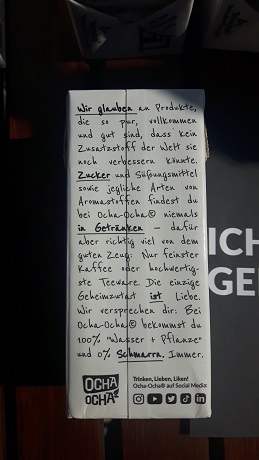 Wir glauben an Produkte,
die so pur, vollkommen
und gut sind, dass kein
Zusatzstoff der Welt sie
noch verbessern könnte.
Zucker und Süßungsmittel
sowie jegliche Arten von
Aromastoffen findest du
bei Ocha-Ocha® niemals
in Getränken – dafür
aber richtig viel von dem
guten Zeug: Nur feinster
Kaffee oder hochwertig-
ste Teeware. Die einzige
Geheimzutat ist Liebe.
Wir versprechen dir: Bei
Ocha-Ocha® bekommst du
100% "Wasser + Pflanze"
und 0% Schmarrn. Immer.
OCHA
OCHA
Trinken, Lieben, Liken!
Ocha-Ocha® auf Social Media:
ICH
GE